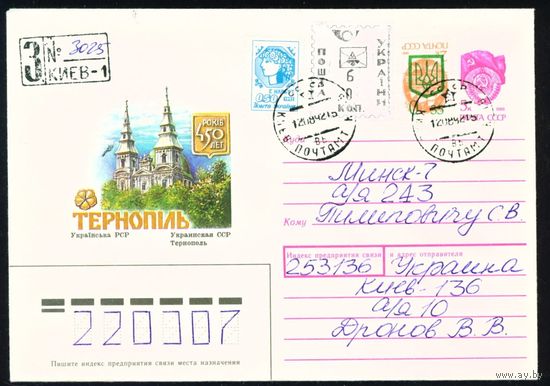 З № 3025
КИЕВ-1
0.50
ПОШТА
УКРАЇНИ
6
0
КОП.
ПОЧТА СССР
5к
ПОЧТА СССР
КИЕВ ПОЧТАМТ
120892
450
РОКІВ
ЛЕТ
ТЕРНОПІЛЬ
Українська РСР
Украинская ССР
Тернополь
Куда
Минск-7
а/я 243
Кому
С.В.
Индекс предприятия связи и адрес отправителя
253136 Украина
Киев-136
а/я 10
Дронов В.В.
220307
Пишите индекс предприятия связи места назначения
www.ay.by